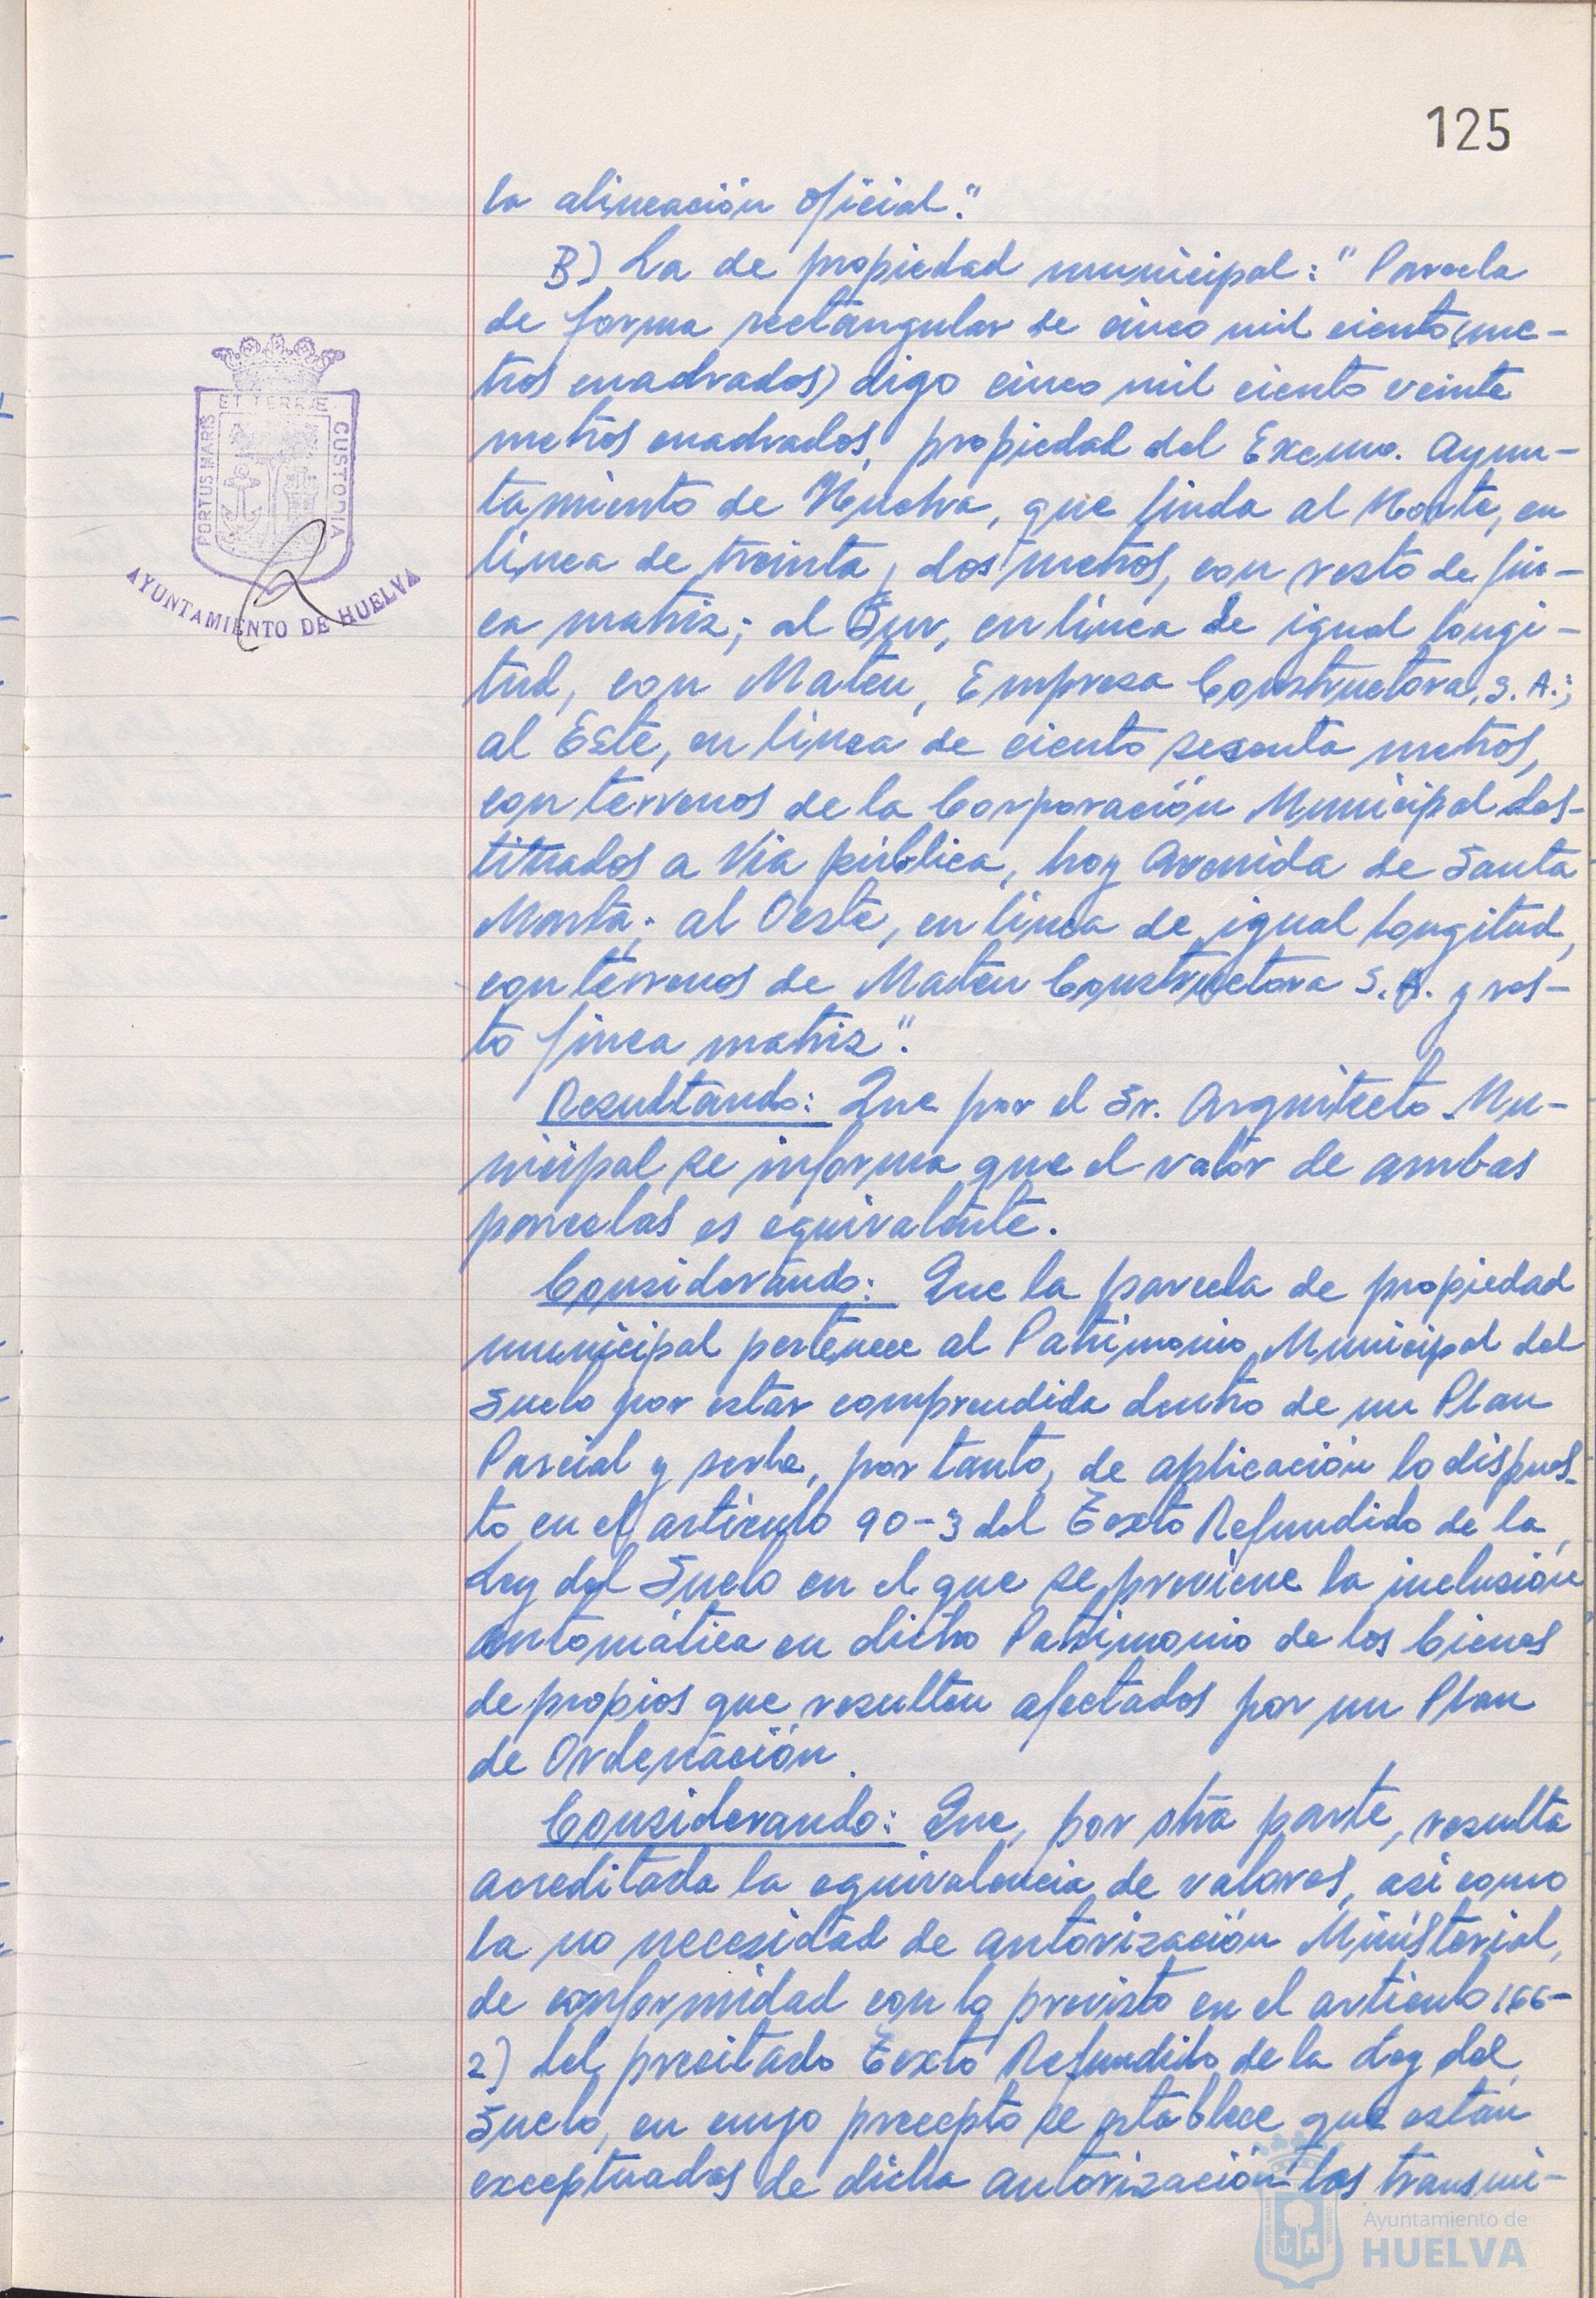 125
la alineación oficial".
B) La de propiedad municipal: "Parcela
de forma rectangular de cinco mil ciento (me-
tros cuadrados) digo cinco mil ciento veinte
metros cuadrados, propiedad del Excmo. Ayun-
tamiento de Huelva, que linda al Norte, en
línea de treinta y dos metros, con resto de fin-
ca matriz; al Sur, en línea de igual longi-
tud, con Mateu, Empresa Constructora, S. A.;
al Este, en línea de ciento sesenta metros,
con terrenos de la Corporación Municipal des-
tinados a Vía pública, hoy Avenida de Santa
Marta; al Oeste, en línea de igual longitud,
con terrenos de Mateu Constructora S. A. y res-
to finca matriz".
Resultando: Que por el Sr. Arquitecto Mu-
nicipal se informa que el valor de ambas
parcelas es equivalente.
Considerando: Que la parcela de propiedad
municipal pertenece al Patrimonio Municipal del
Suelo por estar comprendida dentro de un Plan
Parcial y serle, por tanto, de aplicación lo dispues-
to en el artículo 90-3 del Texto Refundido de la
Ley del Suelo en el que se previene la inclusión
automática en dicho Patrimonio de los bienes
de propios que resulten afectados por un Plan
de Ordenación.
Considerando: Que, por otra parte, resulta
acreditada la equivalencia de valores, así como
la no necesidad de autorización Ministerial,
de conformidad con lo previsto en el artículo 166-
2) del precitado Texto Refundido de la Ley del
Suelo, en cuyo precepto se establece que están
exceptuadas de dicha autorización las transmi-
PORTUS MARIS ET TERRÆ CUSTODIA
AYUNTAMIENTO DE HUELVA
Ayuntamiento de
HUELVA